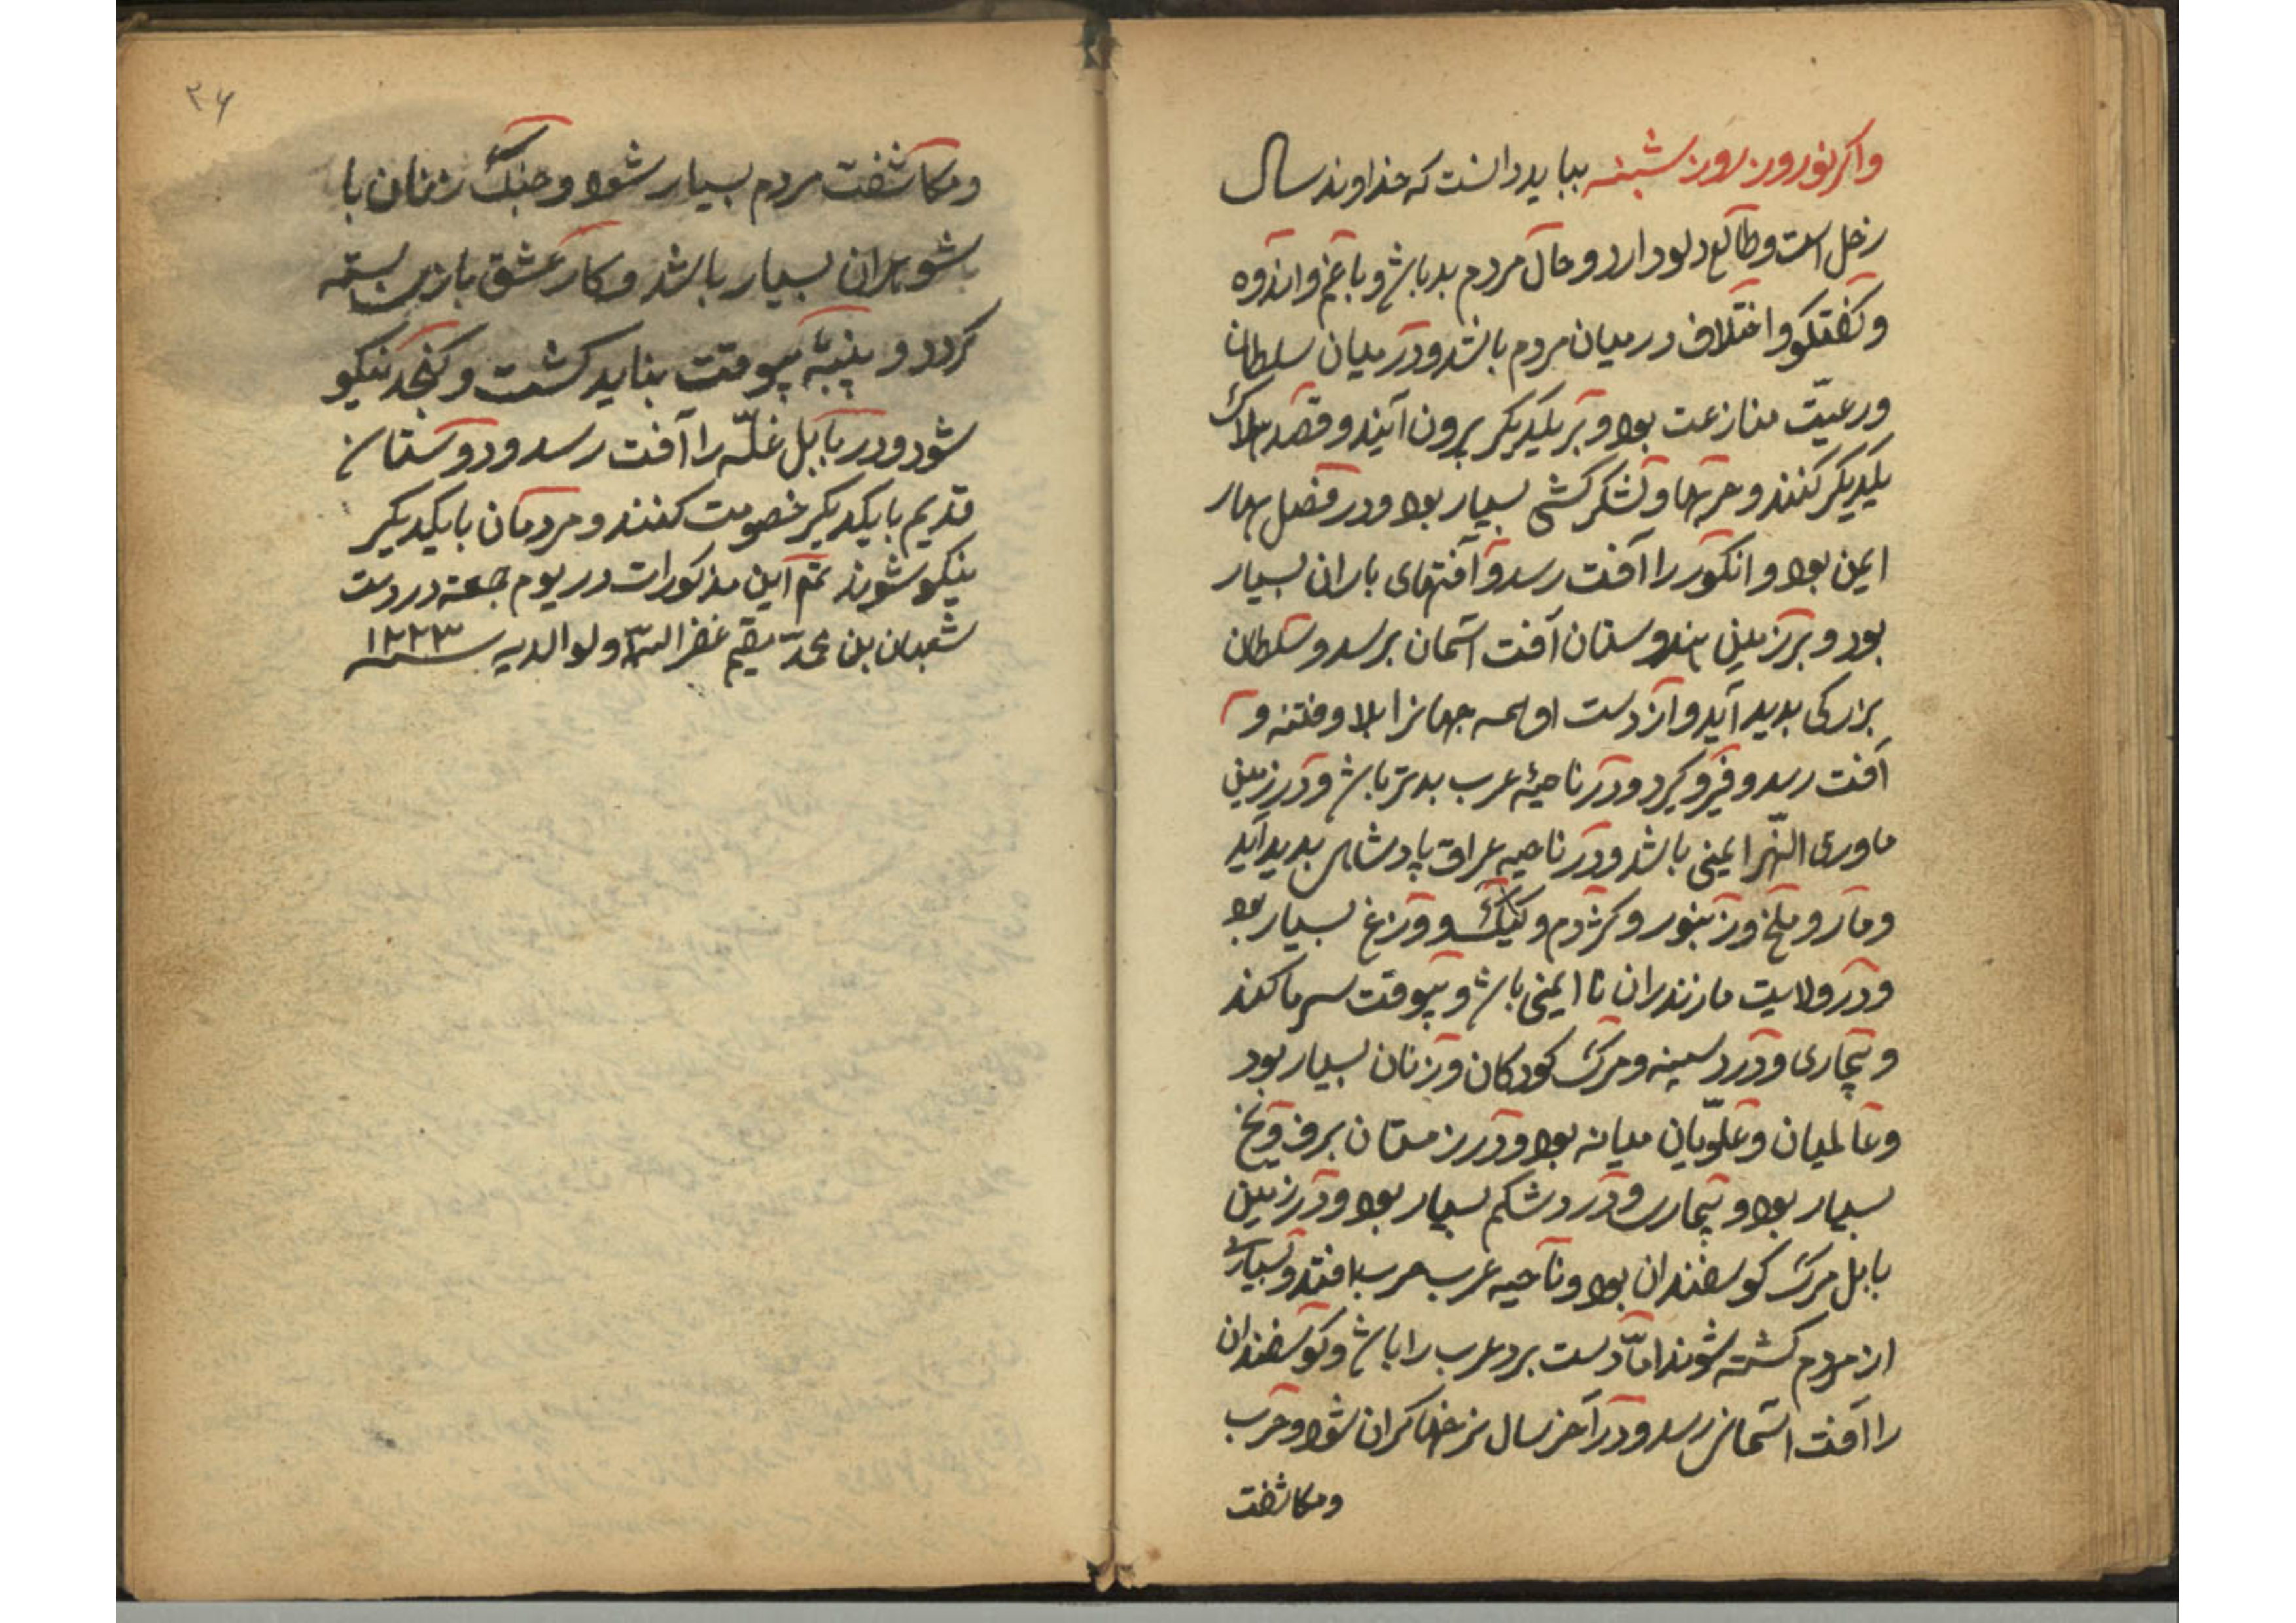 واکر نوروز روز شنبه بباید دانست که خداوند سال
زحل است و طالع دلو دارد و حال مردم بد باش و با غم و اندوه
و کفتکو و اختلاف در میان مردم باشد و در میان سلطان
و رعیّت منازعت بود و بر یکدیکر برون آیند و قصد هلاک
یکدیکر کنند و حربها و لشکر کشی بسیار بود و در فصل بهار
ایمن بود و انکور را آفت رسد و آفتهای باران بسیار
بود و بر زمین هندوستان آفت اسمان برسد و سلطان
بزرکی بدید آید و از دست او همه جهانرا بلا و فتنه و
آفت رسد و فرو کیرد و در ناحیهٔ عرب بدتر باش و در زمین
ماوری النّهر ایمنی باشد و در ناحیه عراق پادشاهی بدید آید
و مار و ملخ و زنبور و کژدم و کیک و وزغ بسیار بود
و در ولایت مازندران نا ایمنی باش و بیوقت سرما کند
و بیماری و درد سینه و مرک کودکان و زنان بسیار بود
و عالمیان و علویّان میانه بود و در زمستان برف و یخ
بسیار بود و بیماری و درد شکم بسیار بود و در زمین
بابل مرک کوسفندان بود و ناحیه عرب حرب افتد و بسیاری
از مردم کشته شوند امّا دست برد عرب را باش و کوسفندان
را آفت اسمانی رسد و در آخر سال نرخها کران شود و حرب
و مکاشفت
۲۶
و مکاشفت مردم بسیار شود و جنک زنان با
شوهران بسیار باشد و کار عشق بازی بسته
کردد و پنبه بیوقت بناید کشت و کنجد نیکو
شود و در بابل غلّه را آفت رسد و دوستان
قدیم با یکدیکر خصومت کنند و مردمان با یکدیکر
نیکو شوند تم این مذکورات در یوم جمعه در دست
شعبان بن محمّد مقیم غفر الله و لوالدیه سنه ۱۲۲۳